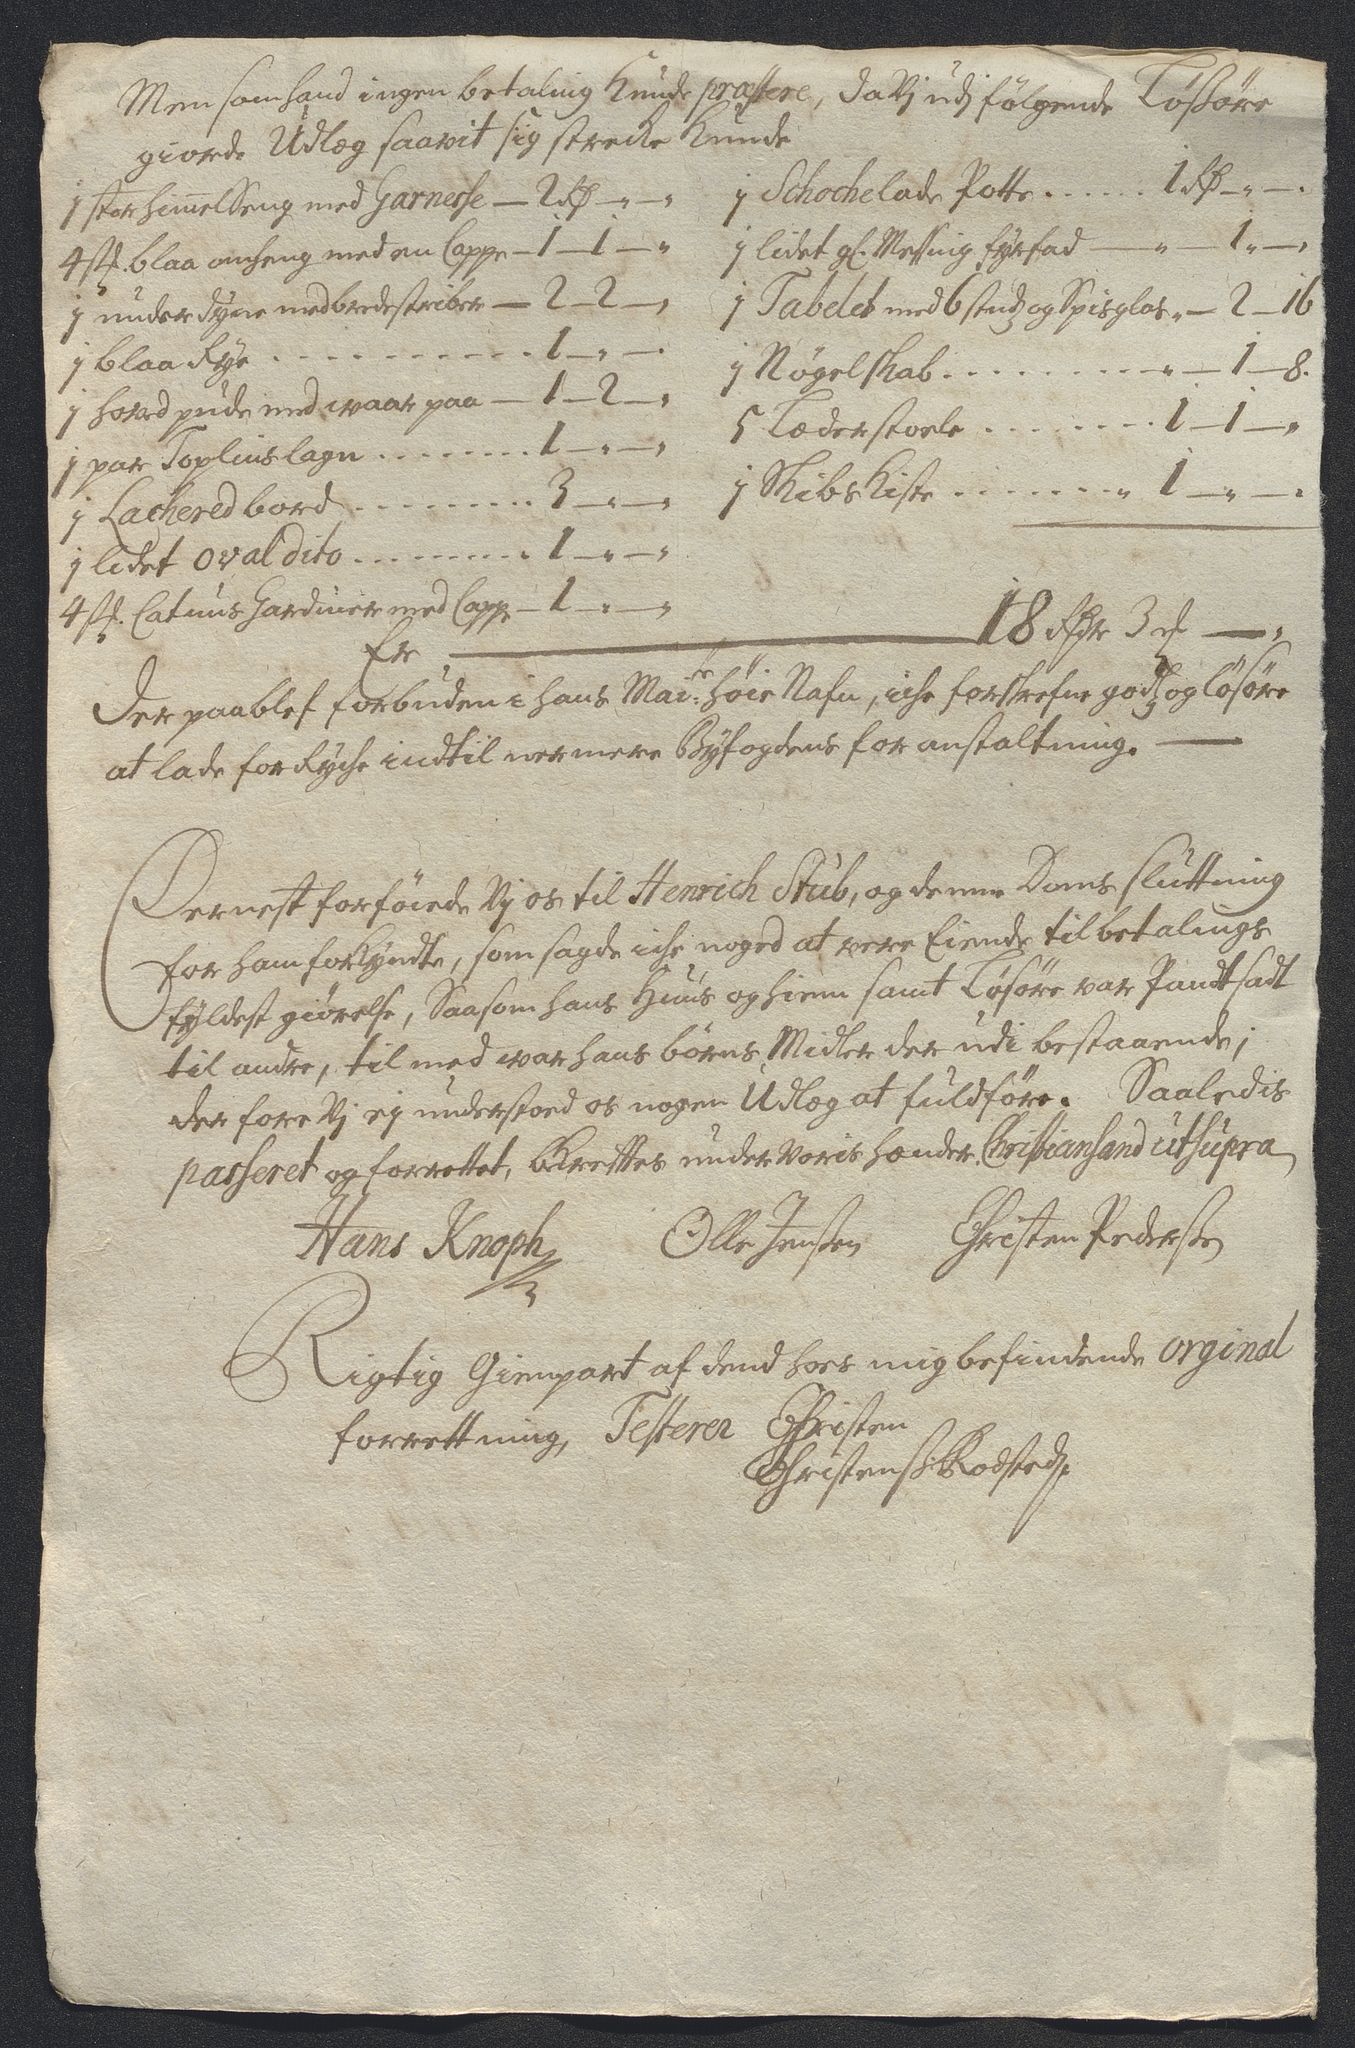 Men som hand ingen betaling kunde præstere, da Vj udj følgende Løßøre
giorde Udlæg saavit sig strecke kunde
1 stor himmelSeng med Garnesse — 2 Rd — " — "
4 st. blaa omheng med en Cappe — 1 — 1 — "
1 underdyne med brede striber — 2 — 2 — "
1 blaa Rye . . . . . . . . . . 1 — " — "
1 hoved pude med waar paa — 1 — 2 — "
1 par Toplins lagn . . . . . . . 1 — " — "
1 Lachered bord . . . . . . . . 3 — " — "
1 lidet oval dito . . . . . . . . 1 — " — "
4 st. Catuns Gardiner med Cappe — 1 — " — "
1 Schochelade Potte . . . . . . 1 Rd — " — "
1 lidet gl. Messing fyrfad — " — 1 — "
1 Tabelet med 6 studz og Spisglas " — 2 — 16
1 Nøgel skab . . . . . . . . . " — 1 — 8.
5 Læderstoele . . . . . . . . 1 — 1 — "
1 Skibs Kiste . . . . . . . " 1 — " — "
Er — 18 Rdr 3 — "
Der paa blef forbuden i hans Mai:ts høie Nafn, iche forskrefne godz og løsøre
at lade forRyche indtil nermere Byfogdens foranstaltning. —
Dernest forføiede Vj os til Henrich Stub, og denne Doms sluttning
for ham forkyndte, som sagde iche noged at være Eiende til betalings
fyldest giørelse, Saasom hans Huus og hiem samt Løsøre var Pandtsadt
til andre, til med war hans børns Midler der udi bestaaende;
der fore Vj ej understoed os nogen Udlæg at fuldføre. Saaledis
passeret og forrettet, bekreftes under Voris hænder. Christiansand ut supra
Hans Knoph Olle Jensen Christen Pedersen
Rigtig Gienpart af dend hoes mig befindende orginal
forrettning, Testerer Christen
Christens: Rodsted